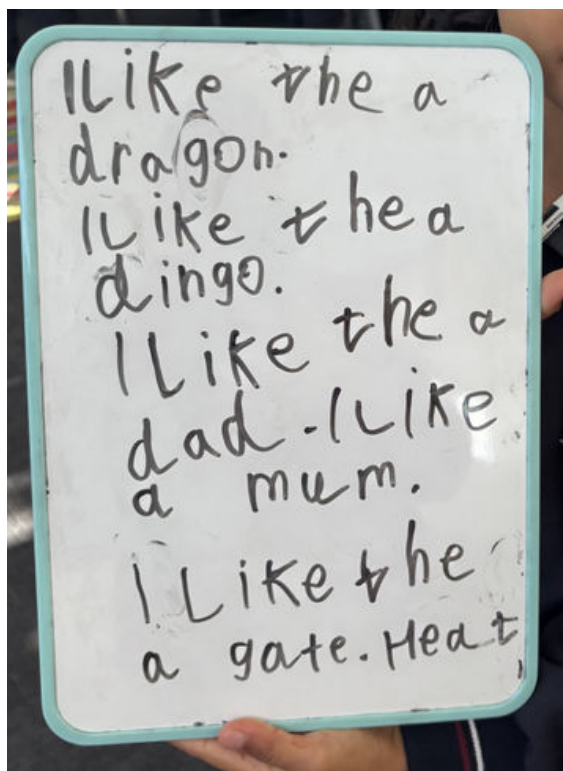 I Like the a
dragon.
I Like the a
dingo.
I Like the a
dad. I Like
a mum.
I Like the
a gate. Heat